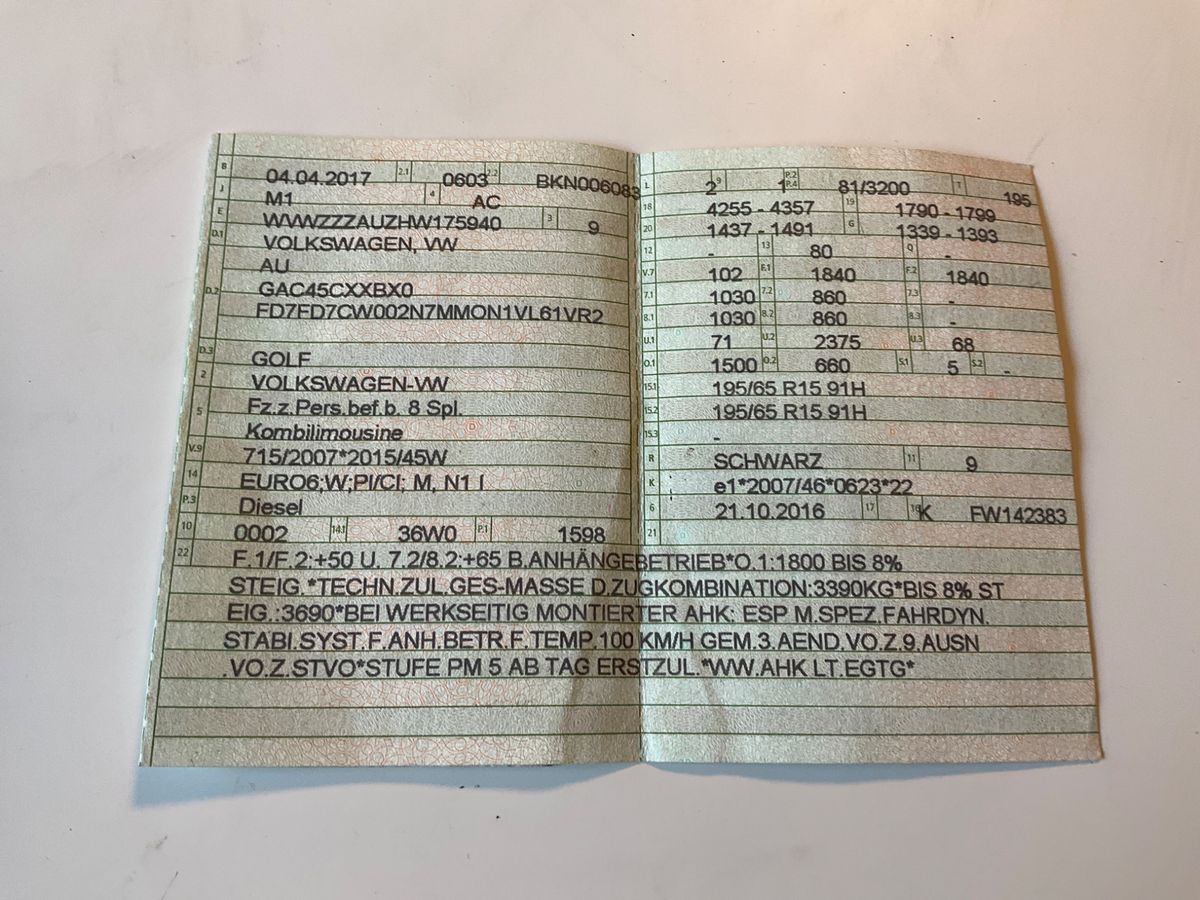 B 04.04.2017 2.1 0603 2.2 BKN006083
J M1 4 AC
E WVWZZZAUZHW175940 3 9
D.1 VOLKSWAGEN, VW
AU
D.2 GAC45CXXBX0
FD7FD7CW002N7MMON1VL61VR2
D.3 GOLF
2 VOLKSWAGEN-VW
5 Fz.z.Pers.bef.b. 8 Spl.
Kombilimousine
V.9 715/2007*2015/45W
14 EURO6;W;PI/CI; M, N1 I
P.3 Diesel
10 0002 14.1 36W0 P.1 1598
L 2 9 1 P.2 P.4 81/3200 T 195
18 4255 - 4357 19 1790 - 1799
20 1437 - 1491 G 1339 - 1393
12 - 13 80 Q -
V.7 102 F.1 1840 F.2 1840
7.1 1030 7.2 860 7.3 -
8.1 1030 8.2 860 8.3 -
U.1 71 U.2 2375 U.3 68
O.1 1500 O.2 660 S.1 5 S.2 -
15.1 195/65 R15 91H
15.2 195/65 R15 91H
15.3 -
R SCHWARZ 11 9
K e1*2007/46*0623*22
6 21.10.2016 17 K 16 FW142383
21
22 F.1/F.2:+50 U. 7.2/8.2:+65 B.ANHÄNGEBETRIEB*O.1:1800 BIS 8%
STEIG.*TECHN.ZUL.GES-MASSE D.ZUGKOMBINATION:3390KG*BIS 8% ST
EIG.:3690*BEI WERKSEITIG MONTIERTER AHK: ESP M.SPEZ.FAHRDYN.
STABI.SYST.F.ANH.BETR.F.TEMP.100 KM/H GEM.3.AEND.VO.Z.9.AUSN
.VO.Z.STVO*STUFE PM 5 AB TAG ERSTZUL.*WW.AHK LT.EGTG*